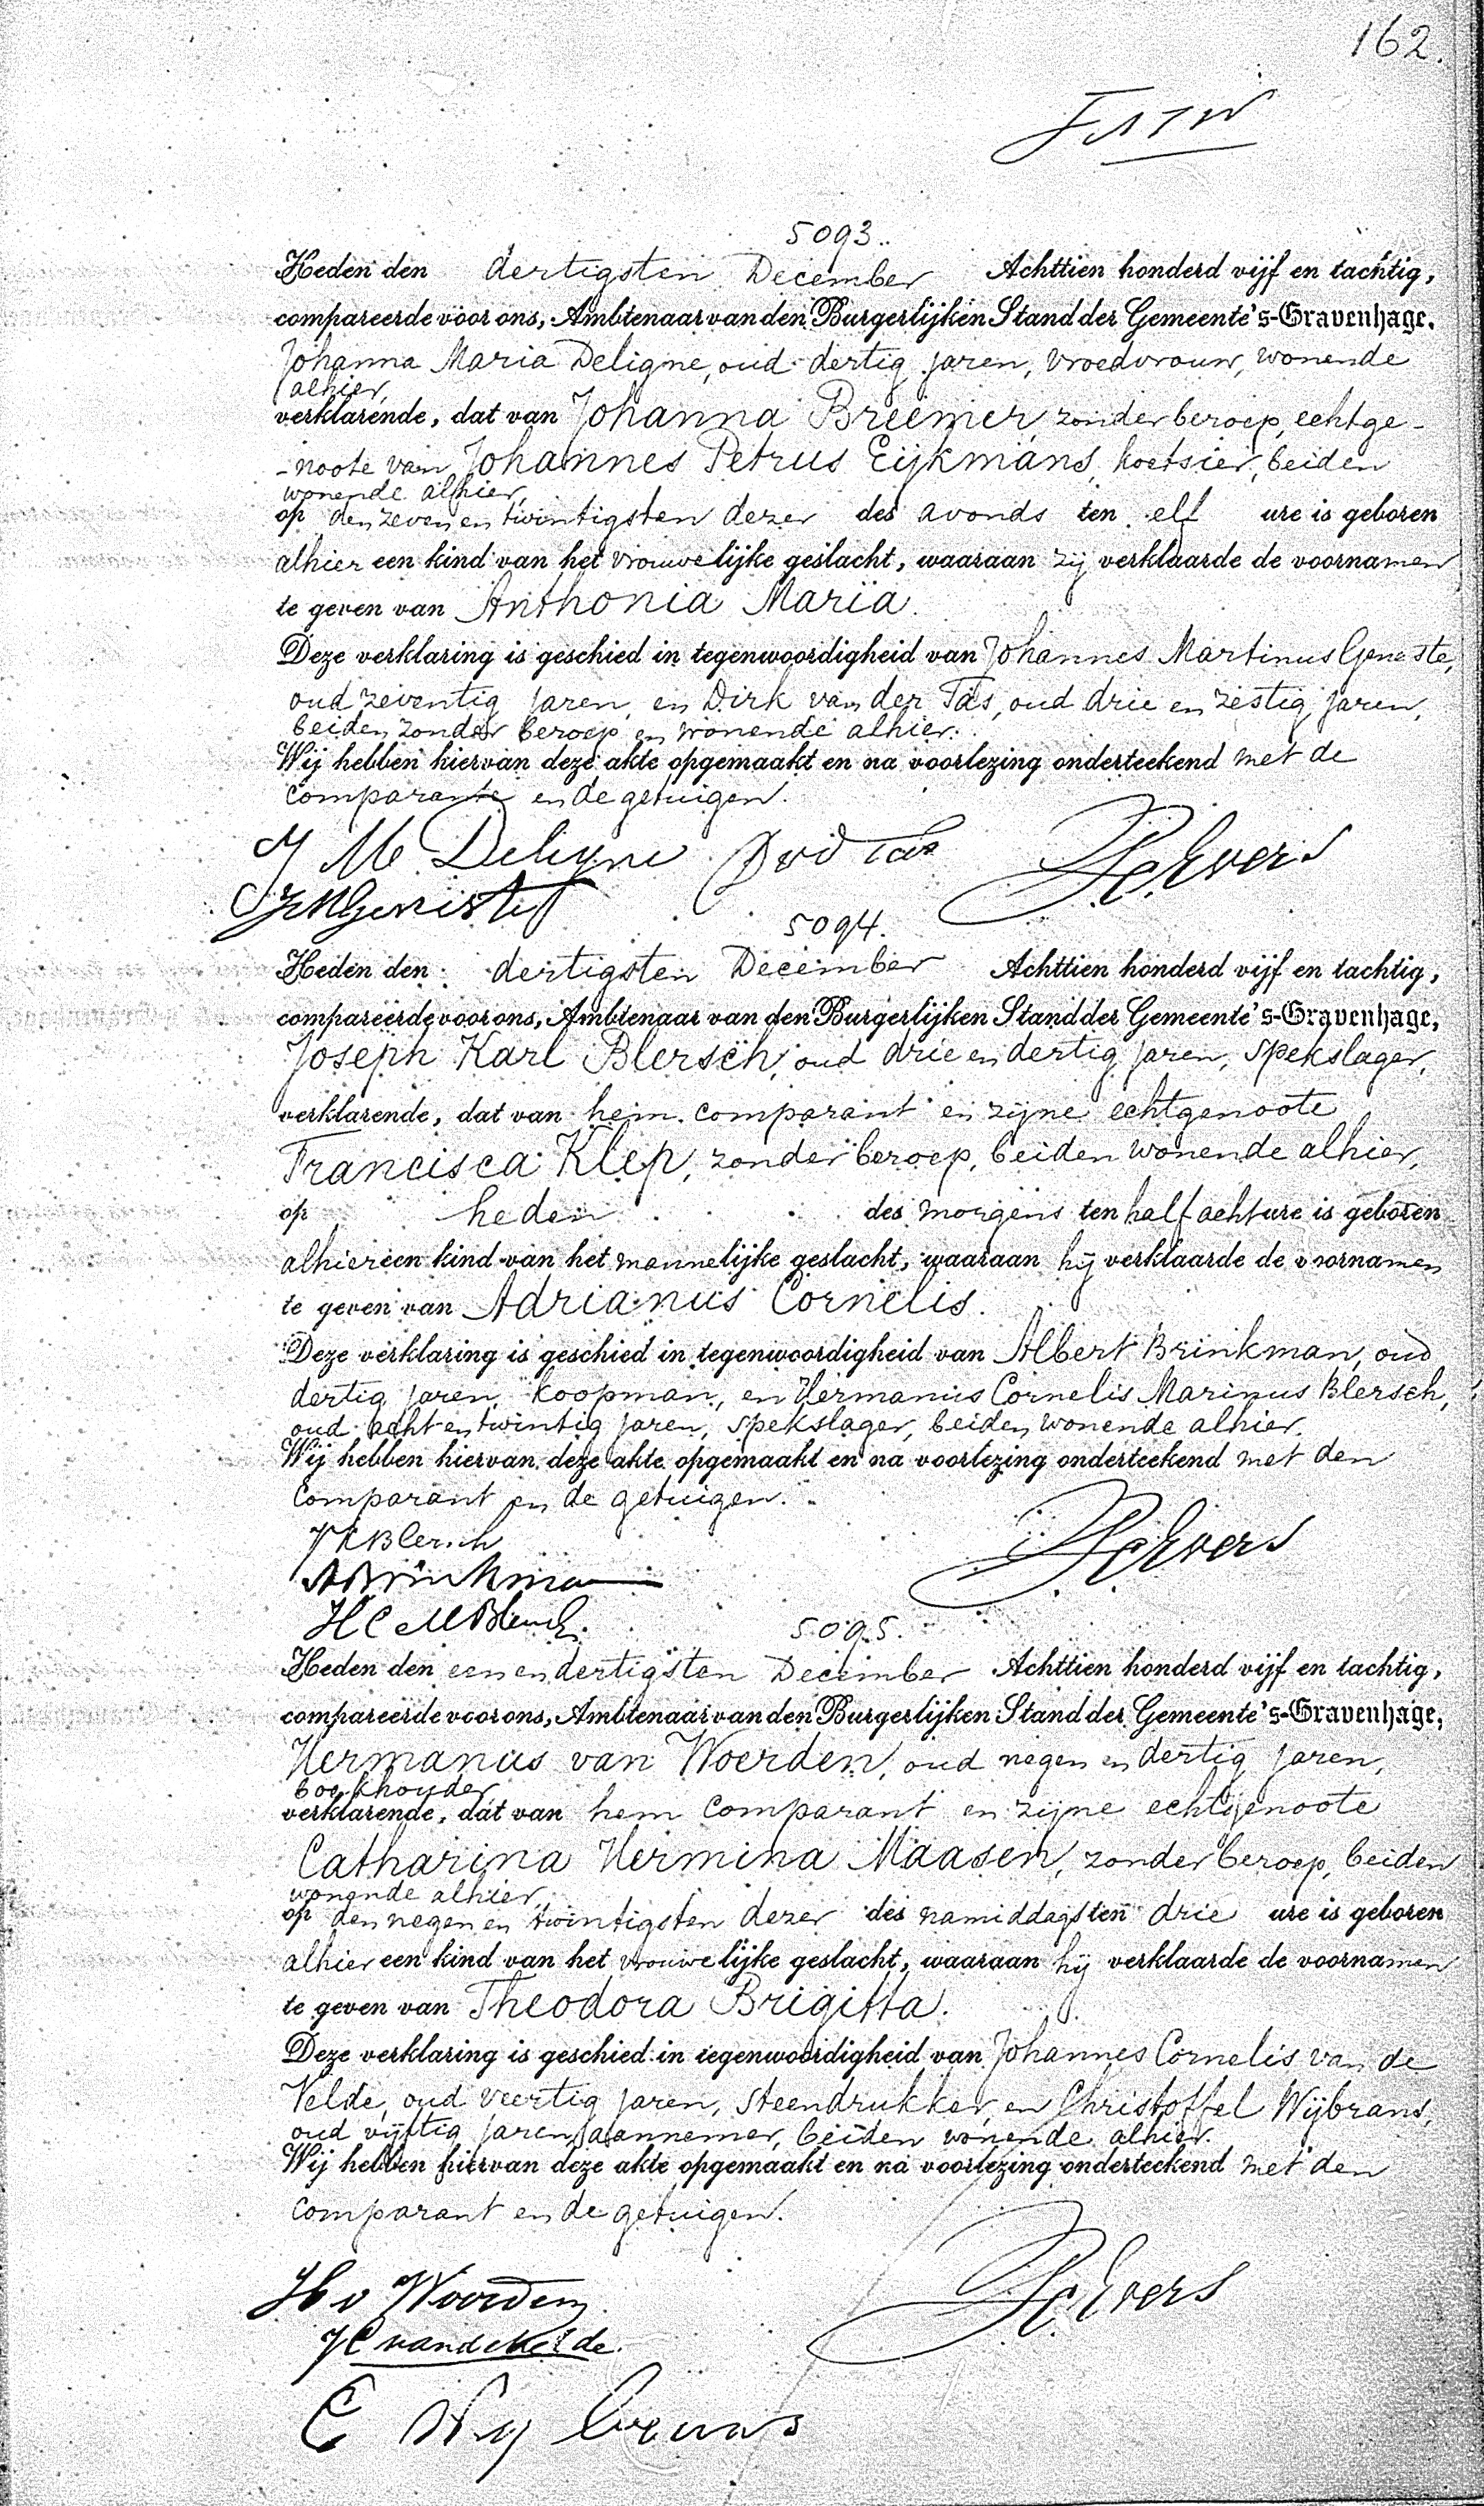 162.
5093.
Heden den dertigsten December Achttien honderd vijf en tachtig,
compareerde voor ons, Ambtenaar van den Burgerlijken Stand der Gemeente 's-Gravenhage,
Johanna Maria Deligne, oud dertig jaren, vroedvrouw, wonende
alhier,
verklarende, dat van Johanna Breemer, zonder beroep, echtge-
-noote van Johannes Petrus Eijkmans, koetsier, beiden
wonende alhier,
op den zeven en twintigsten dezer des avonds ten elf ure is geboren
alhier een kind van het vrouwelijke geslacht, waaraan zij verklaarde de voornamen
te geven van Anthonia Maria.
Deze verklaring is geschied in tegenwoordigheid van Johannes Martinus Geneste,
oud zeventig jaren, en Dirk van der Tas, oud drie en zestig jaren,
beiden zonder beroep en wonende alhier.
Wij hebben hiervan deze akte opgemaakt en na voorlezing onderteekend met de
comparante en de getuigen.
J M Deligne D v d Tas Evers
5094.
Heden den dertigsten December Achttien honderd vijf en tachtig,
compareerde voor ons, Ambtenaar van den Burgerlijken Stand der Gemeente 's-Gravenhage,
Joseph Karl Blersch, oud drie en dertig jaren, spekslager,
verklarende, dat van hem comparant en zijne echtgenoote
Francisca Klep, zonder beroep, beiden wonende alhier,
op heden des morgens ten half acht ure is geboren
alhier een kind van het mannelijke geslacht, waaraan hij verklaarde de voornamen
te geven van Adrianus Cornelis.
Deze verklaring is geschied in tegenwoordigheid van Albert Brinkman, oud
dertig jaren, koopman, en Hermanus Cornelis Marinus Blersch,
oud acht en twintig jaren, spekslager, beiden wonende alhier.
Wij hebben hiervan deze akte opgemaakt en na voorlezing onderteekend met den
comparant en de getuigen.
J K Blersch Evers
A Brinkman
H C M Blersch
5095.
Heden den een en dertigsten December Achttien honderd vijf en tachtig,
compareerde voor ons, Ambtenaar van den Burgerlijken Stand der Gemeente 's-Gravenhage,
Hermanus van Woerden, oud negen en dertig jaren,
boekhouder
verklarende, dat van hem comparant en zijne echtgenoote
Catharina Hermina Maasen, zonder beroep, beiden
wonende alhier,
op den negen en twintigsten dezer des namiddags ten drie ure is geboren
alhier een kind van het vrouwelijke geslacht, waaraan hij verklaarde de voornamen
te geven van Theodora Brigitta.
Deze verklaring is geschied in tegenwoordigheid van Johannes Cornelis van de
Velde, oud veertig jaren, steendrukker, en Christoffel Wijbrans,
oud vijftig jaren, aannemer, beiden wonende alhier.
Wij hebben hiervan deze akte opgemaakt en na voorlezing onderteekend met den
comparant en de getuigen.
H v Woerden Evers
J C van de Velde.
C Wybrans